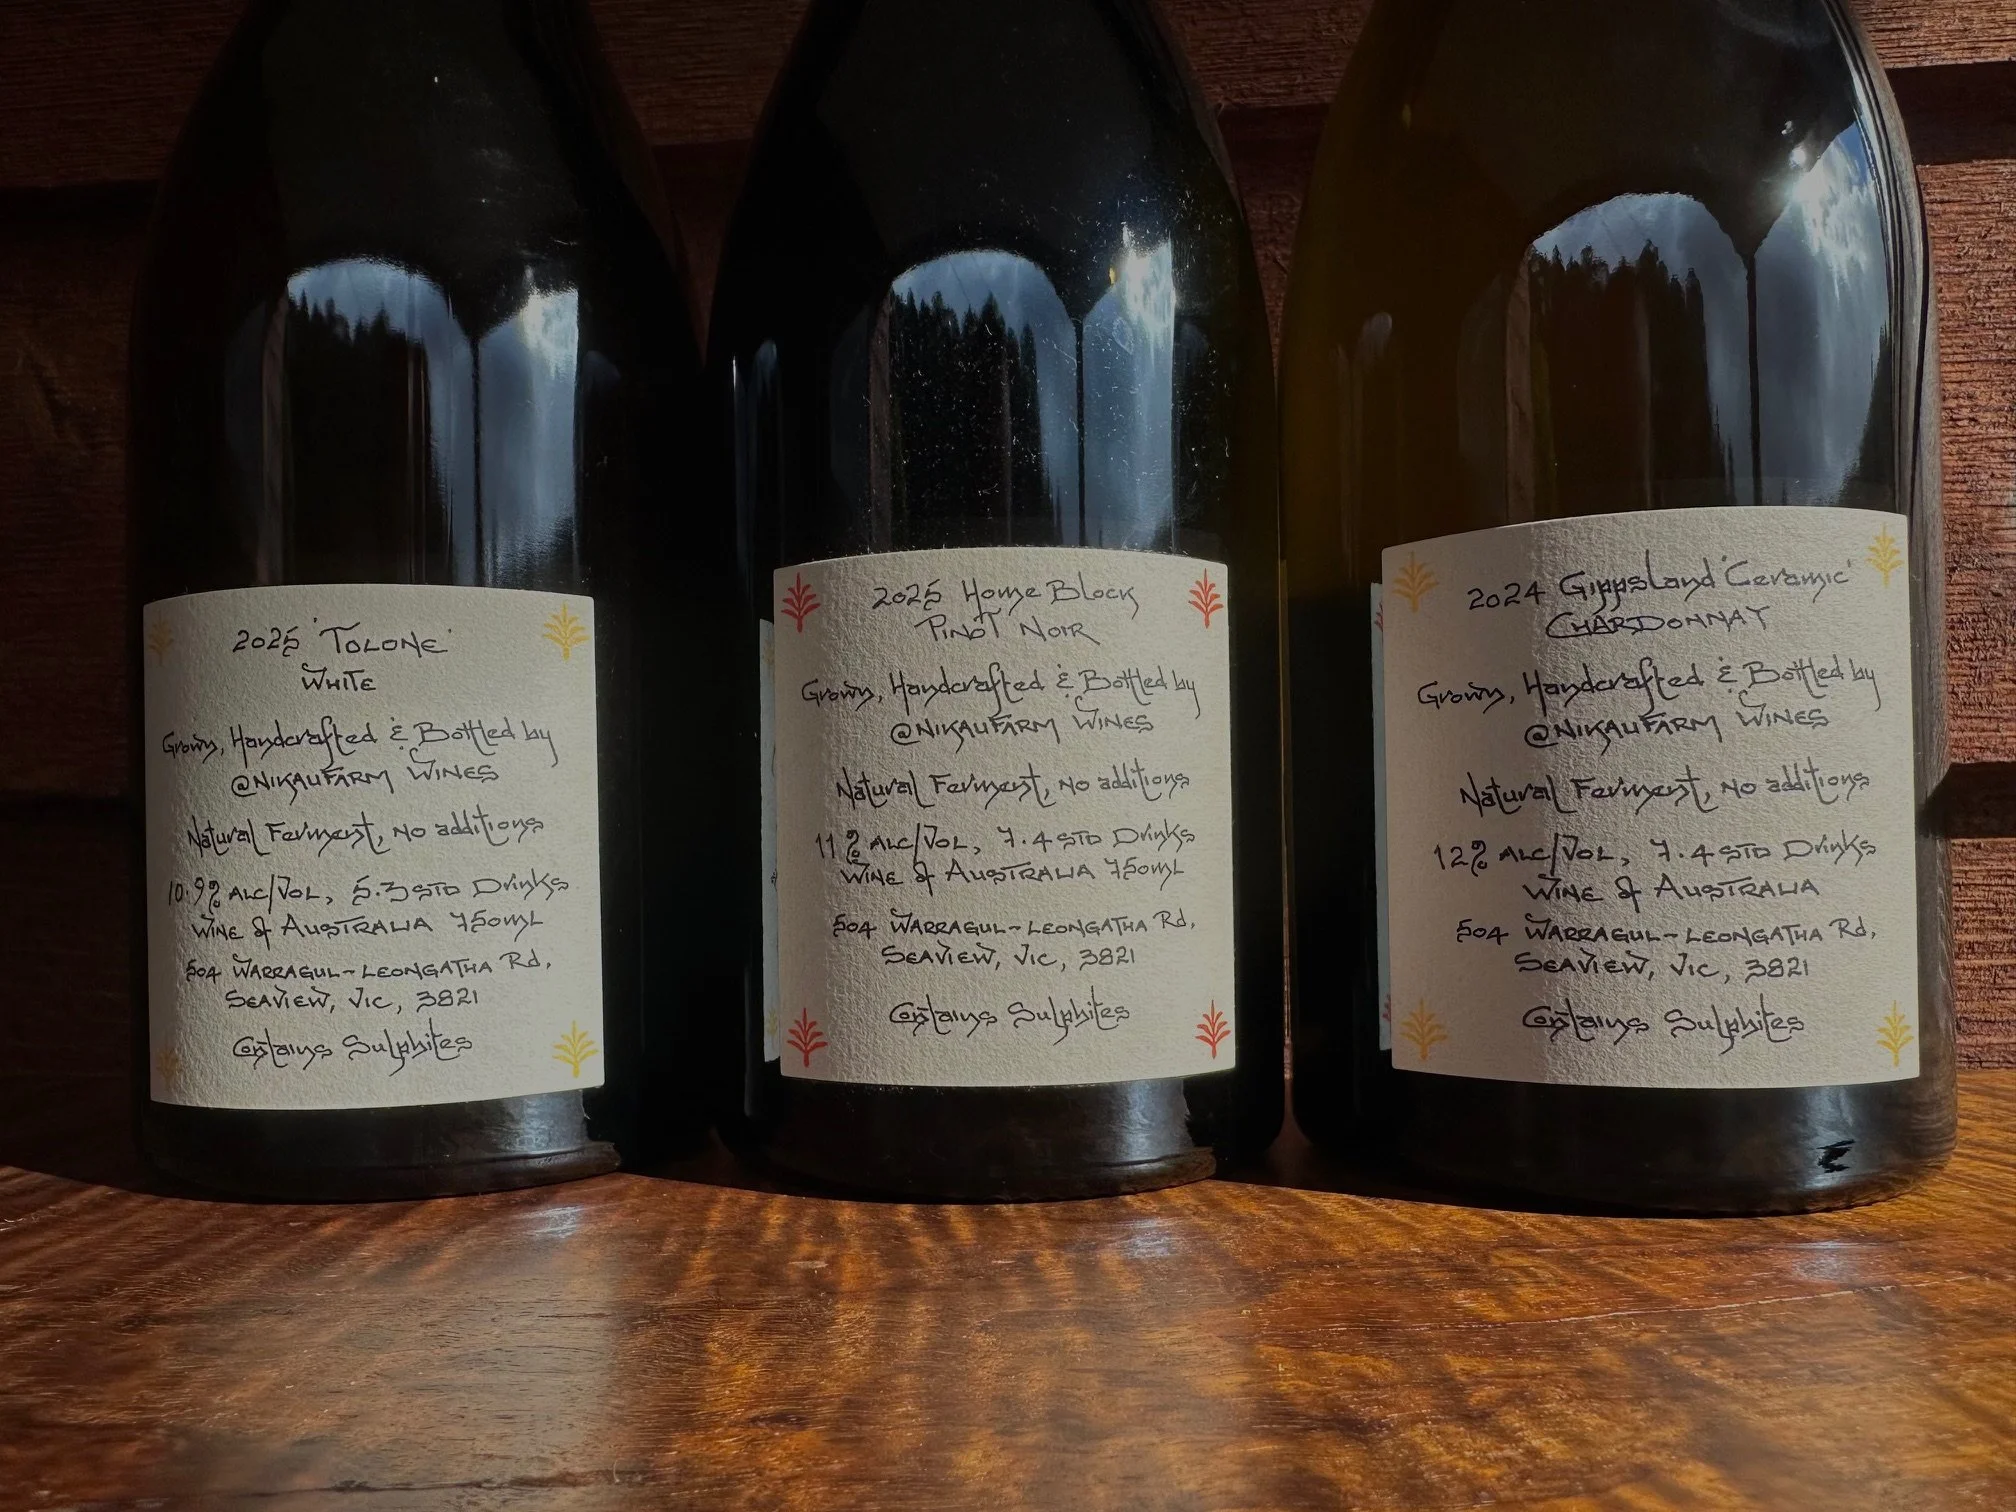 2025 'TOLONE'
WHITE
Grown, Handcrafted & Bottled by
@NIKAUFARM WINES
Natural Ferment, NO additions
10.9% ALC/VOL, 5.3 STD Drinks
WINE of AUSTRALIA 750mL
504 WARRAGUL-LEONGATHA Rd,
SEAVIEW, VIC, 3821
Contains Sulphites
2025 Home Block
PINOT NOIR
Grown, Handcrafted & Bottled by
@NIKAUFARM WINES
Natural Ferment, NO additions
11% ALC/VOL, 7.4 STD Drinks
WINE of AUSTRALIA 750mL
504 WARRAGUL-LEONGATHA Rd,
SEAVIEW, VIC, 3821
Contains Sulphites
2024 Gippsland 'Ceramic'
CHARDONNAY
Grown, Handcrafted & Bottled by
@NIKAUFARM WINES
Natural Ferment, NO additions
12% ALC/VOL, 7.4 STD Drinks
WINE of AUSTRALIA
504 WARRAGUL-LEONGATHA Rd,
SEAVIEW, VIC, 3821
Contains Sulphites